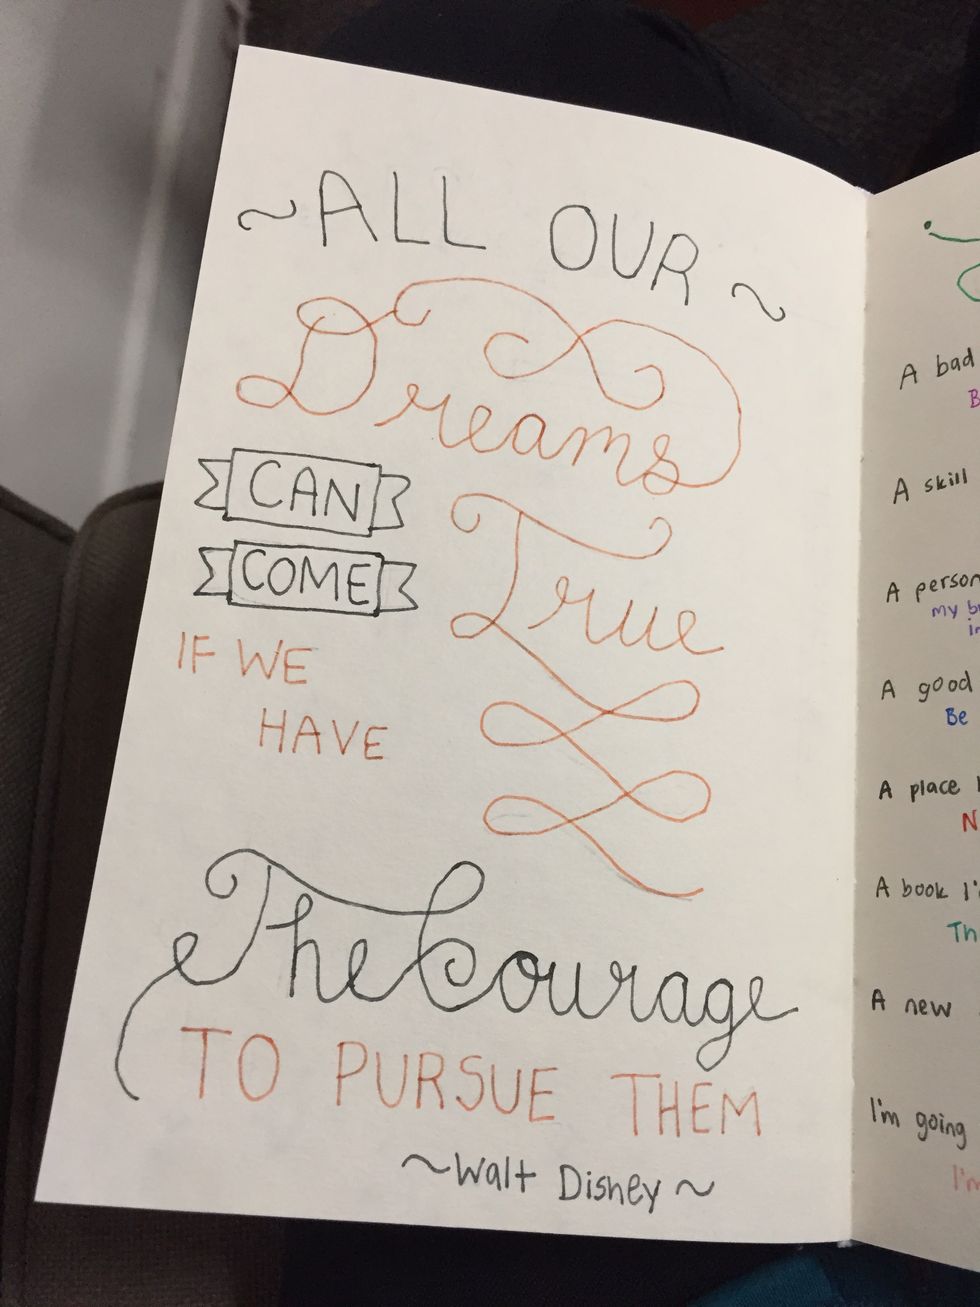 ~ALL OUR~
Dreams
CAN
COME
True
IF WE
HAVE
The Courage
TO PURSUE THEM
~Walt Disney~
A bad
A skill
A person
my
A good
Be
A place
A book
A new
I'm going
I'm